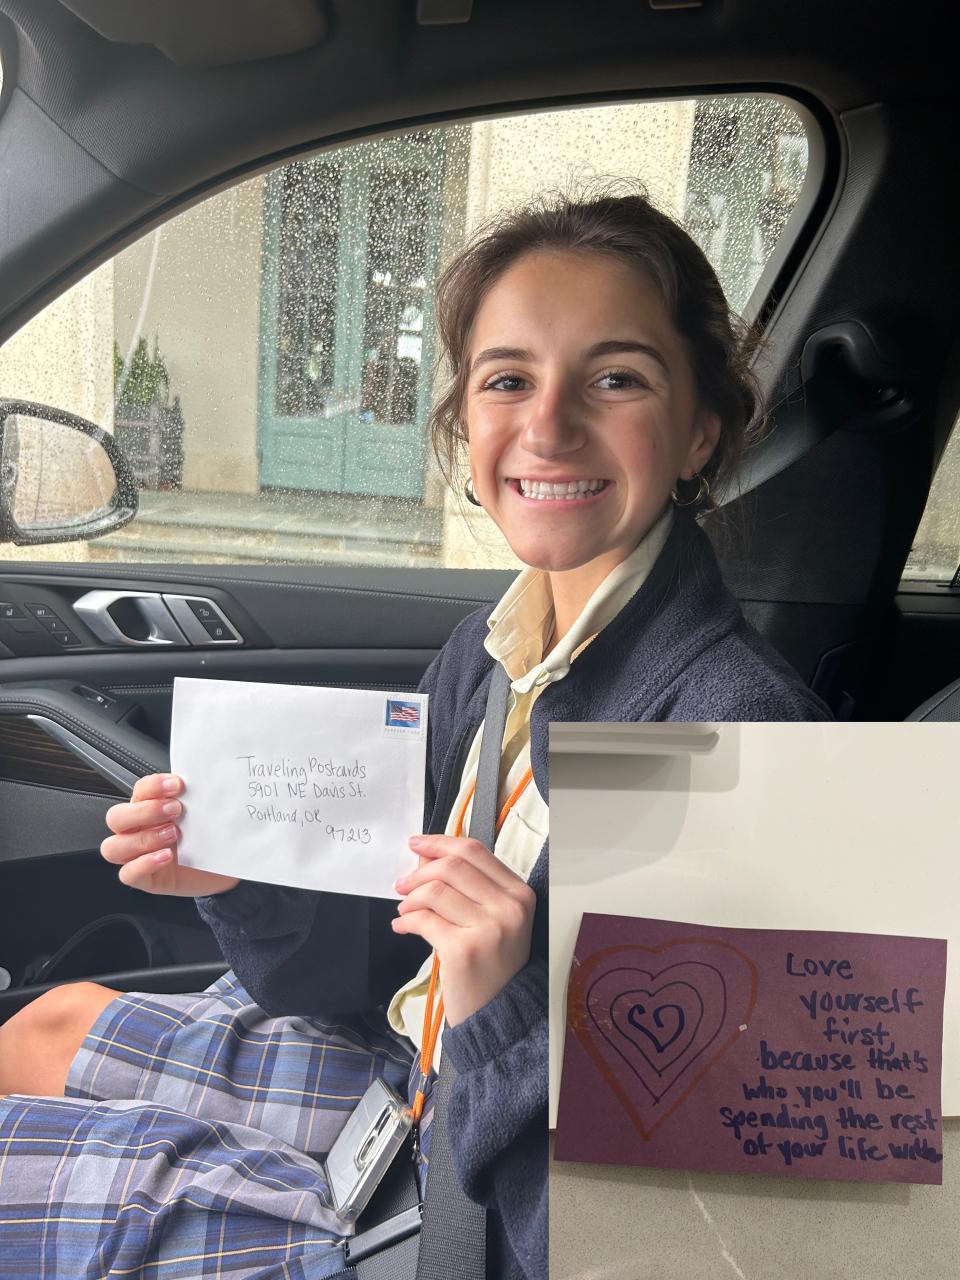 Traveling Postcards
5901 NE Davis St.
Portland, OR
97213
Love
yourself
first,
because that's
who you'll be
spending the rest
of your life with